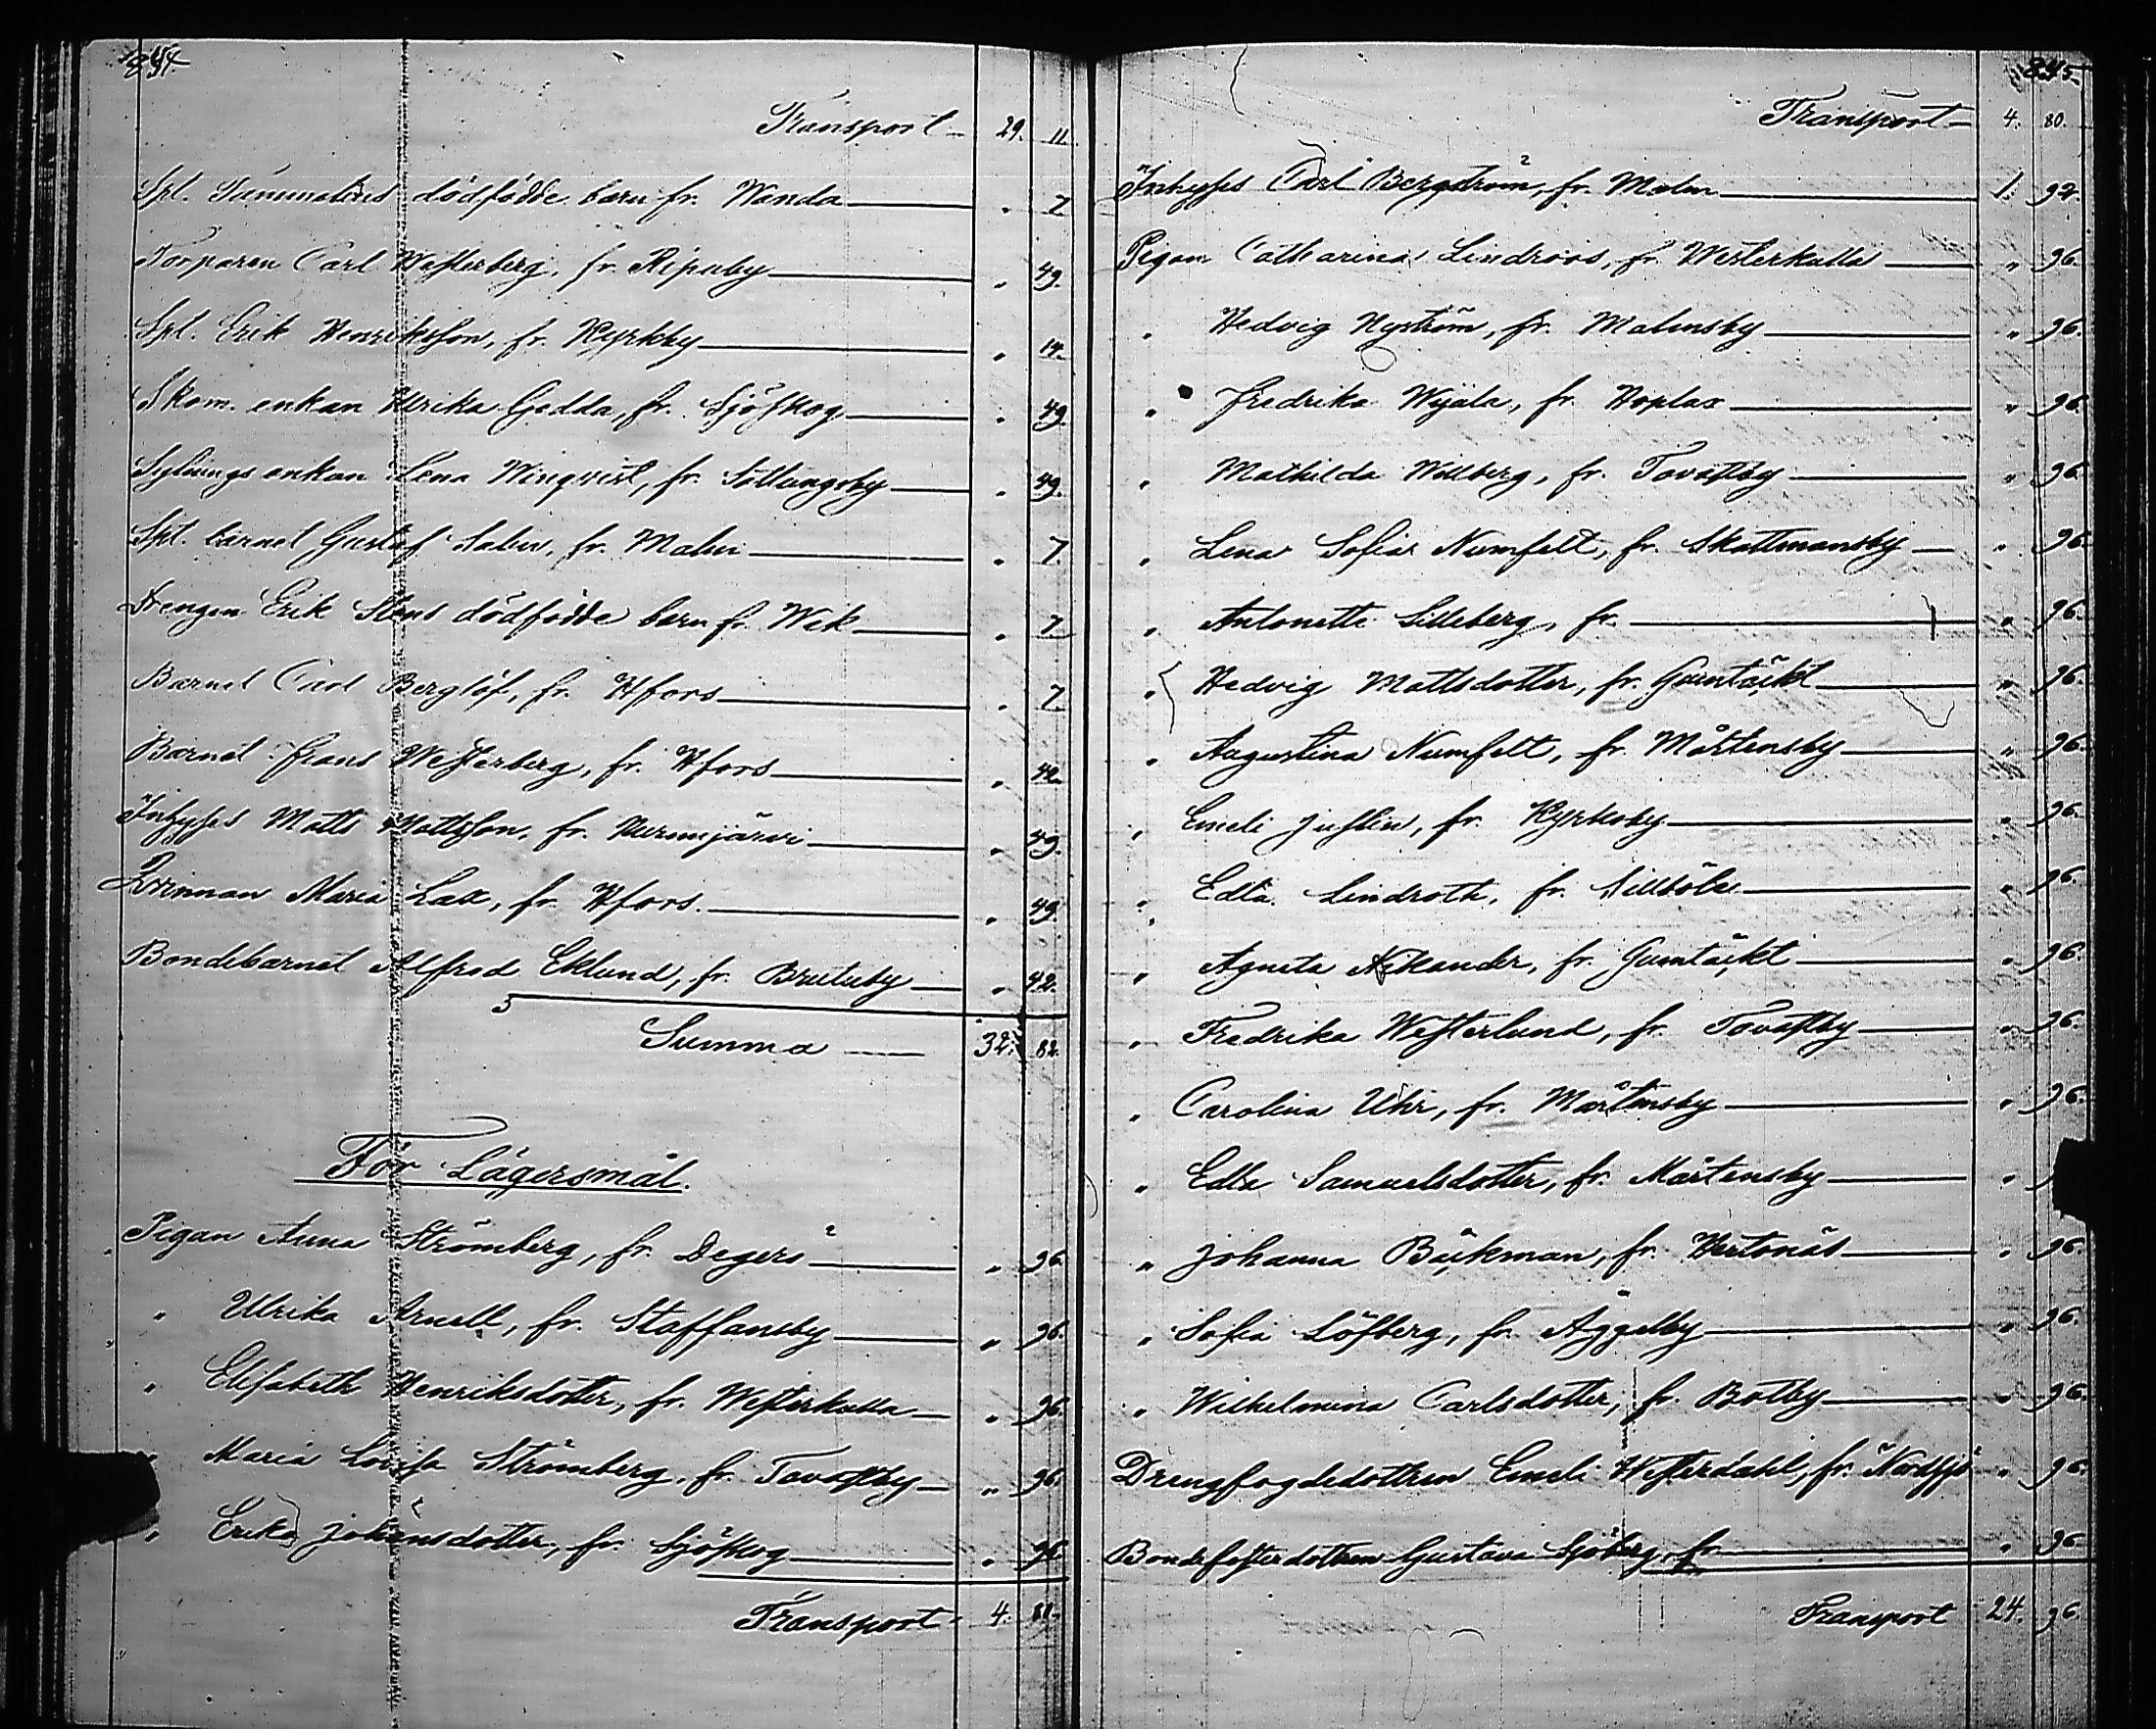 844.
Transport 29. 11.
Spl. dödfödde barn fr. Wanda " 7
Torparen Carl Westerberg, fr. Ripuby " 49.
Spl. Erik Henriksson, fr. Kyrkby " 14.
Skom. enkan Ulrika Gedda, fr. Sjöskog " 49.
enkan Lena Winqvist, fr. Sottungsby " 49.
Spl. barnet Gustaf Malm, fr. Malm " 7.
Drengen Erik Stens dödfödde barn fr. Wik " 7.
Barnet Carl Berglöf, fr. Hfors " 7
Barnet Frans Westerberg, fr. Hfors " 42.
Inhyses Matts Mattsson, fr. Nurmijärvi " 49.
Qvinnan Maria Lax, fr. Hfors. " 49.
Bondebarnet Alfred Eklund, fr. Brutuby " 42.
Summa 32. 82.
För Lägersmål.
Pigan Anna Strömberg, fr. Degerö " 96.
" Ulrika Arnell, fr. Staffansby " 96.
" Elisabeth Henriksdotter, fr. Westerkulla " 96.
" Maria Lovisa Strömberg, fr. Tavastby " 96.
" Erika Johansdotter, fr. Sjöskog " 96.
Transport 4. 80.
845.
Transport 4. 80.
Inhyses Carl Bergström, fr. Malm 1. 92.
Pigan Catharina Lindroos, fr. Westerkulla " 96.
" Hedvig Nyström, fr. Malmsby " 96.
" Fredrika Wijala, fr. Hoplax " 96.
" Mathilda Willberg, fr. Tavastby " 96.
" Lena Sofia Numfelt, fr. Skattmansby " 96.
" Antonette Lilleberg, fr. " 96.
" Hedvig Mattsdotter, fr. Gumtäckt " 96.
" Augustina Numfelt, fr. Mårtensby " 96.
" Emeli Juslin, fr. Kyrkoby " 96.
" Edla Lindroth, fr. Sillböle " 96.
" Agneta Nikander, fr. Gumtäckt " 96.
" Fredrika Westerlund, fr. Tavastby " 96.
" Carolina Uhr, fr. Mårtensby " 96.
" Edla Samuelsdotter, fr. Mårtensby "
" Johanna Bäckman, fr. Hertonäs " 96.
" Sofia Löfberg, fr. Åggelby " 96.
" Wilhelmina Carlsdotter, fr. Botby " 96.
Drengfogdedottren Emeli Westerdahl, fr. Nordsjö " 96.
Bondefosterdottren Gustava Sjöberg, fr. " 96.
Transport 24. 96.